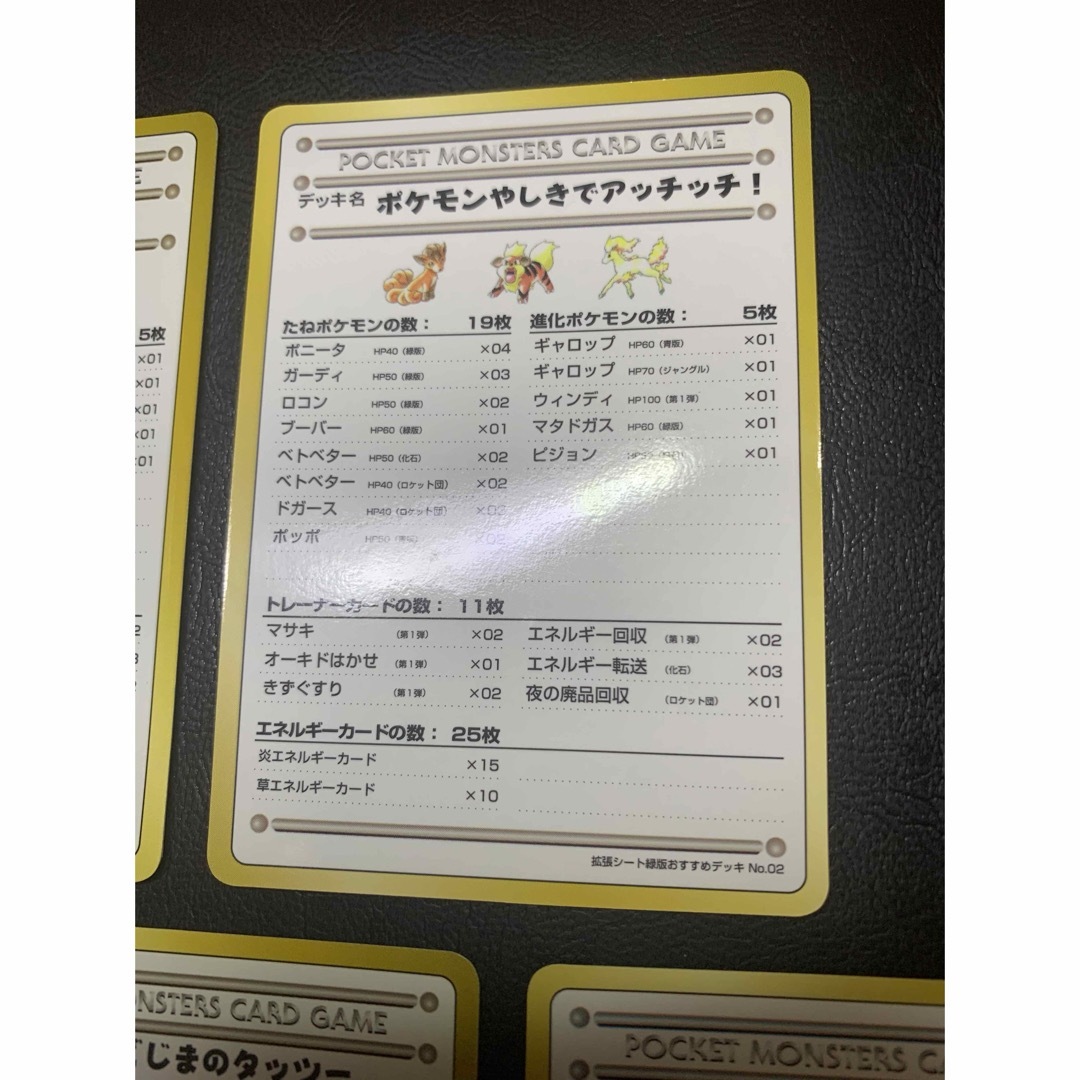 POCKET MONSTERS CARD GAME
デッキ名 ポケモンやしきでアッチッチ！
たねポケモンの数： 19枚
ポニータ HP40（緑版） ×04
ガーディ HP50（緑版） ×03
ロコン HP50（緑版） ×02
ブーバー HP60（緑版） ×01
ベトベター HP50（化石） ×02
ベトベター HP40（ロケット団） ×02
ドガース HP40（ロケット団）
ポッポ HP50
進化ポケモンの数： 5枚
ギャロップ HP60（青版） ×01
ギャロップ HP70（ジャングル） ×01
ウィンディ HP100（第1弾） ×01
マタドガス HP60（緑版） ×01
ピジョン ×01
トレーナーカードの数： 11枚
マサキ （第1弾） ×02
オーキドはかせ （第1弾） ×01
きずぐすり （第1弾） ×02
エネルギー回収 （第1弾） ×02
エネルギー転送 （化石） ×03
夜の廃品回収 （ロケット団） ×01
エネルギーカードの数： 25枚
炎エネルギーカード ×15
草エネルギーカード ×10
拡張シート緑版おすすめデッキ No.02
E
5枚
×01
×01
×01
×01
×01
2
3
2
ONSTERS CARD GAME
じまのタッツー
POCKET MONSTERS CA